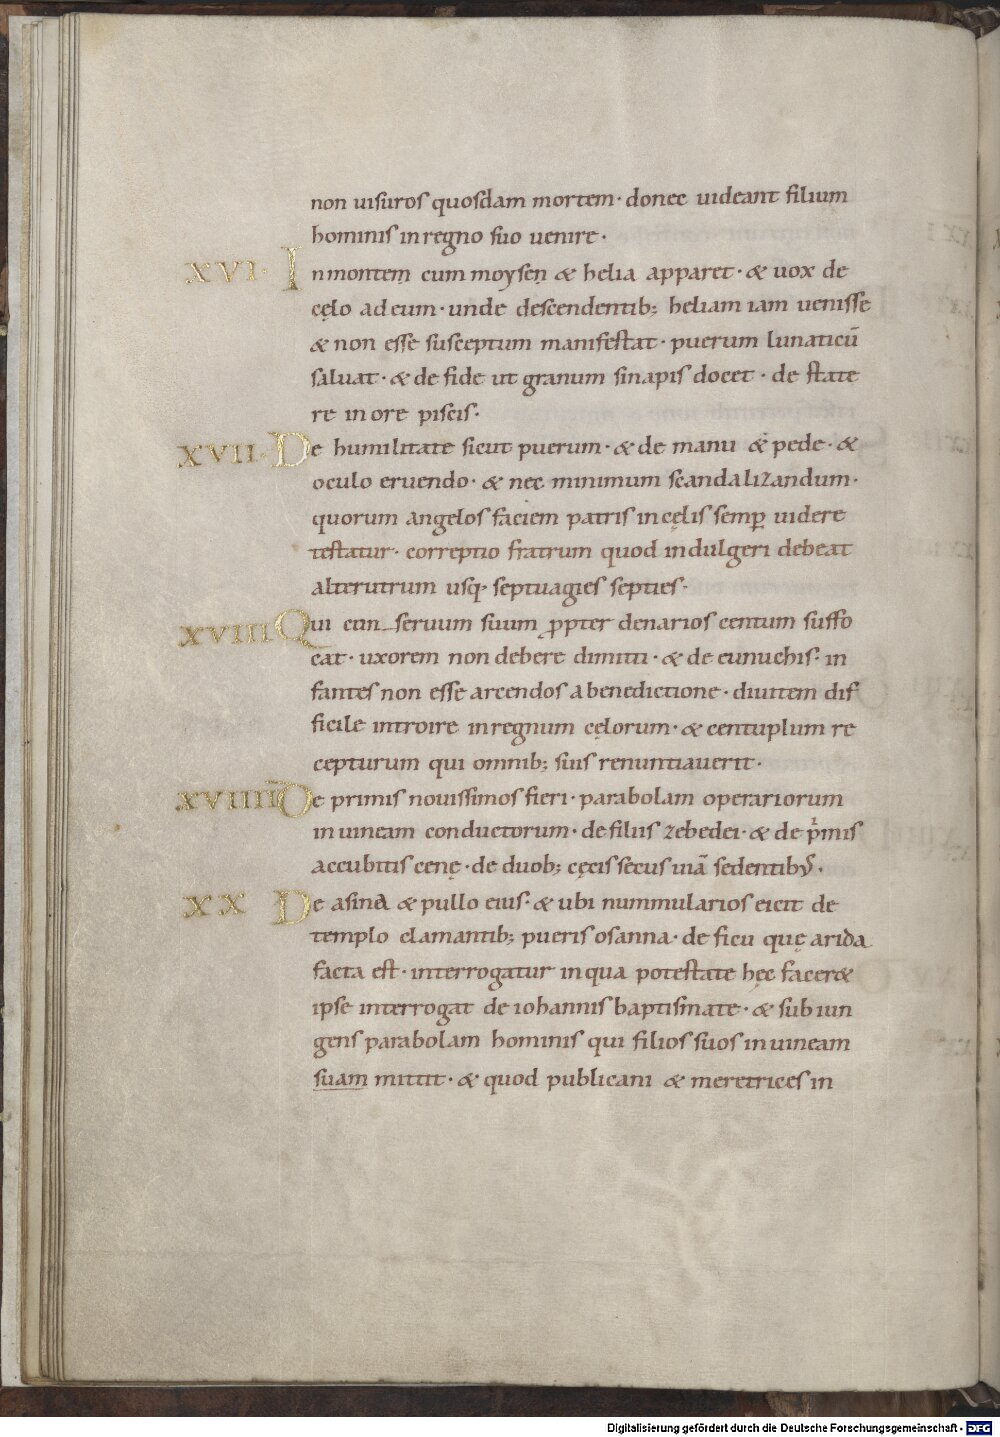 non uisuros quosdam mortem· donec uideant filium
hominis in regno suo uenire·
XVI· In montem cum moysen & helia apparet· & uox de
cęlo ad eum· unde descendentib; heliam iam uenisse
& non esse susceptum manifestat· puerum lunaticū
saluat· & de fide ut granum sinapis docet· de state
re in ore piscis·
XVII· De humilitate sicut puerum· & de manu & pede· &
oculo eruendo· & nec minimum scandalizandum·
quorum angelos faciem patris in cęlis semꝑ uidere
testatur· correptio fratrum quod indulgeri debeat
alterutrum usq· septuagies septies·
XVIII Qui cun seruum suum ꝓpter denarios centum suffo
cat· uxorem non debere dimitti· & de eunuchis· in
fantes non esse arcendos a benedictione· diuitem dif
ficile introire in regnum cęlorum· & centuplum re
cepturum qui omnib; suis renuntiauerit·
XVIIII De primis nouissimos fieri· parabolam operariorum
in uineam conductorum· de filiis zebedei· & de p̍mis
accubitis cenę· de duob; cęcis secus uiā sedentibꝰ·
XX De asina & pullo eius· & ubi nummularios eicit de
templo clamantib; pueris osanna· de ficu quę arida
facta est· interrogatur in qua potestate hęc facer&
ipse interrogat de iohannis baptismate· & subiun
gens parabolam hominis qui filios suos in uineam
suam mittit· & quod publicani & meretrices in
Digitalisierung gefördert durch die Deutsche Forschungsgemeinschaft - DFG